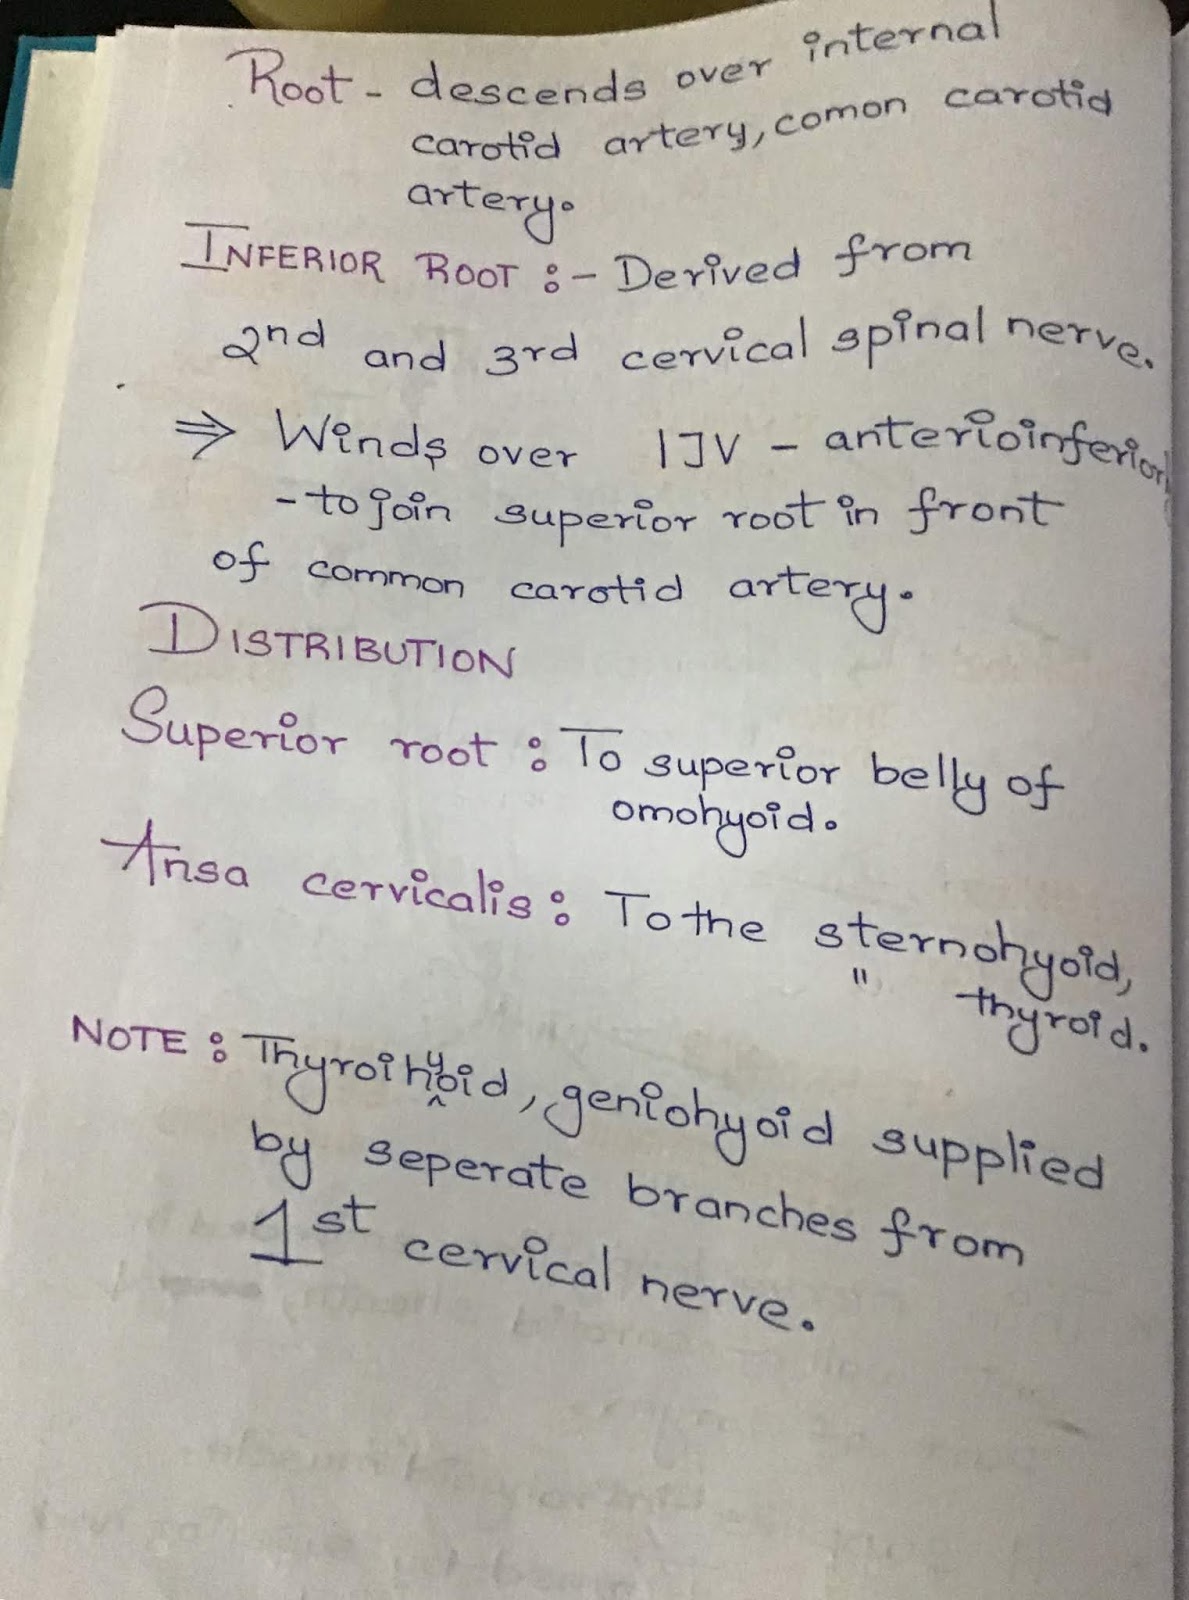 Root - descends over internal
carotid artery, comon carotid
artery.
INFERIOR ROOT :- Derived from
2nd and 3rd cervical spinal nerve.
⇒ Winds over IJV - anterioinferiorly
- to join superior root in front
of common carotid artery.
DISTRIBUTION
Superior root : To superior belly of
omohyoid.
Ansa cervicalis : To the sternohyoid,
" thyroid.
NOTE : Thyroihyoid, geniohyoid supplied
by seperate branches from
1st cervical nerve.